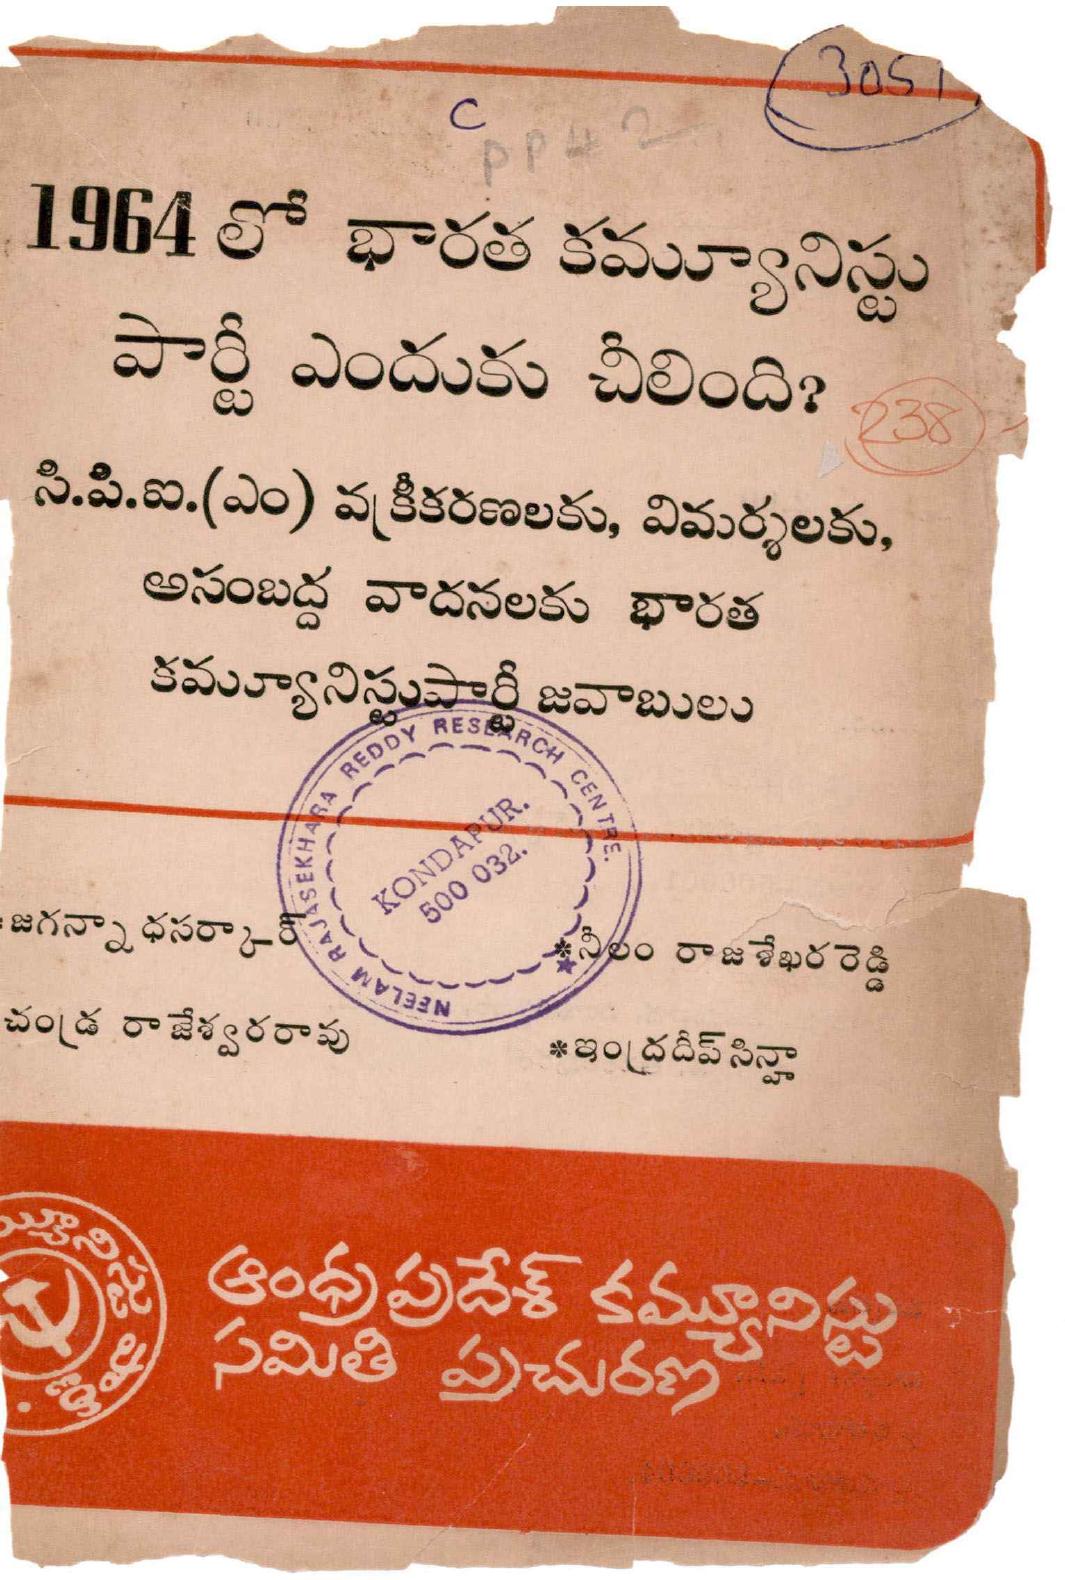 3051
C
PP42
1964 లో భారత కమ్యూనిస్టు
పార్టీ ఎందుకు చీలింది?
238
సి.పి.ఐ.(ఎం) వక్రీకరణలకు, విమర్శలకు,
అసంబద్ద వాదనలకు భారత
కమ్యూనిస్టుపార్టీ జవాబులు
NEELAM RAJASEKHARA REDDY RESEARCH CENTRE.
KONDAPUR.
500 032.
*జగన్నాధసర్కార్
*నీలం రాజశేఖరరెడ్డి
చండ్ర రాజేశ్వరరావు
*ఇంద్రదీప్‌సిన్హా
ఆంధ్రప్రదేశ్ కమ్యూనిస్టు
సమితి ప్రచురణ
మ్యూనిస్టు పార్టీ